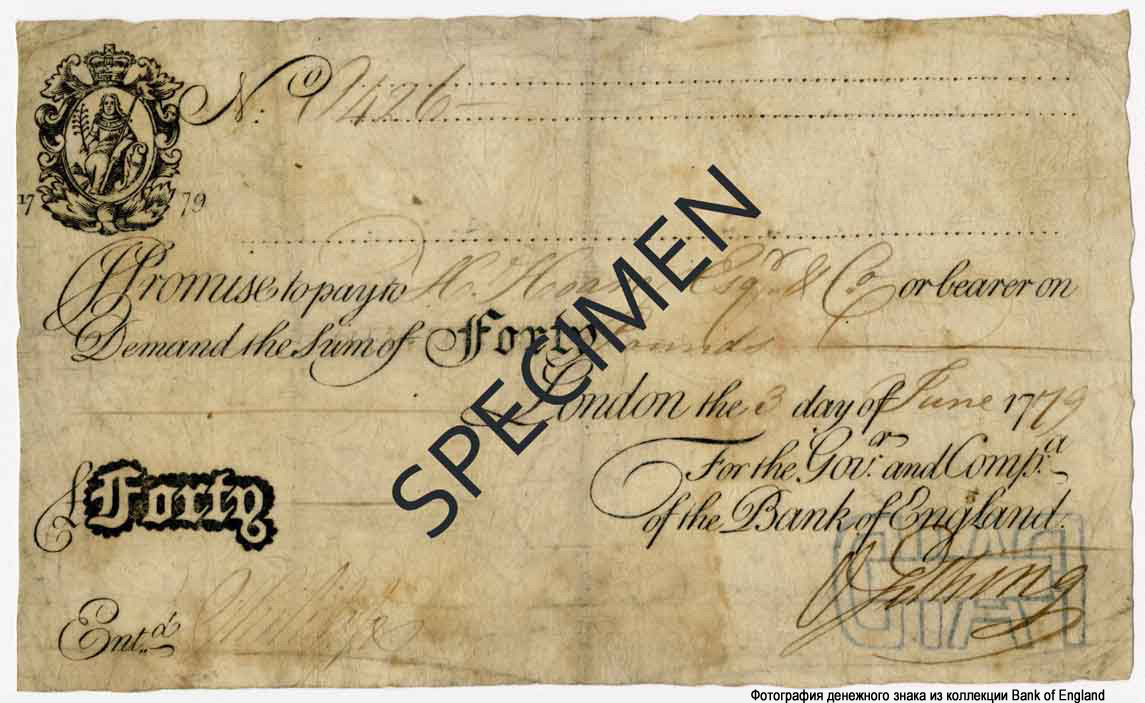 No 426
17 79
I Promise to pay to H. Hoare Esqr. & Co or bearer on
Demand the Sum of Forty Pounds
London the 3 day of June 1779
For the Govr. and Compa.
of the Bank of England.
£ Forty
Entd.
SPECIMEN
Фотография денежного знака из коллекции Bank of England